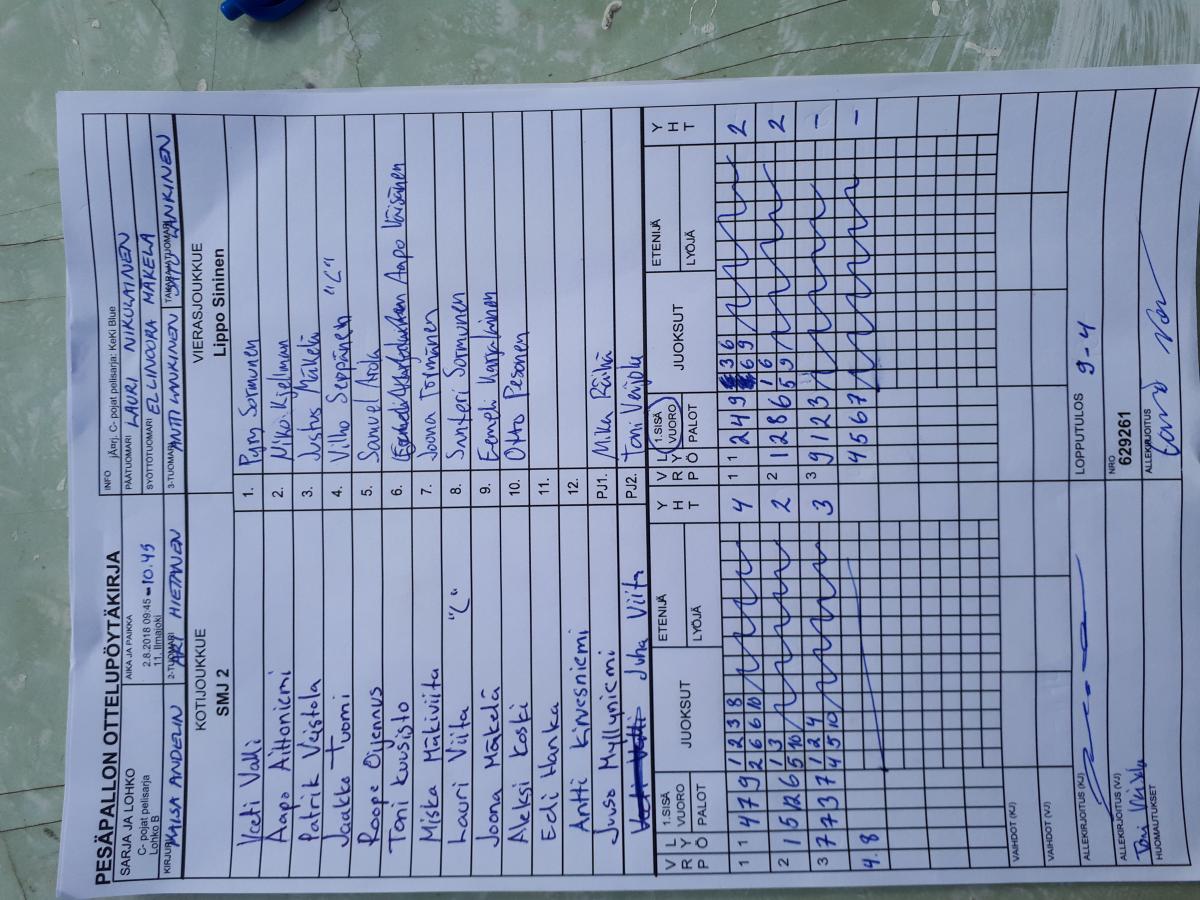 PESÄPALLON OTTELUPÖYTÄKIRJA
SARJA JA LOHKO
C- pojat pelisarja
Lohko B
AIKA JA PAIKKA
2.8.2018 09:45 - 10.45
11. Ilmajoki
INFO jÄnrj. C- pojat pelisarja: KeKi Blue
PÄÄTUOMARI LAURI NIKULAINEN
SYÖTTÖTUOMARI ELLINOORA MÄKELÄ
KIRJURI MAISA ANDELIN
2-TUOMARI ARI HIETANEN
3-TUOMARI ANTTI LAUKINEN
TAKARAJATUOMARI LANKINEN
KOTIJOUKKUE
SMJ 2
VIERASJOUKKUE
Lippo Sininen
Veeti Valli 1. Pyry Sormunen
Aapo Aittoniemi 2. Niko Kjelman
Patrik Veistola 3. Justus Mäkelä
Jaakko Tuomi 4. Vilho Seppänen "C"
Roope Öljennus 5. Samuel Atola
Toni Kuusisto 6. Aapo Väisänen
Miska Mäkiviita 7. Joona Törmänen
Lauri Viita "C" 8. Sankeri Sormunen
Joona Mäkelä 9. Eemeli
Aleksi Koski 10. Otto Pesonen
Eedi Hanka 11.
Antti Kirvesniemi 12.
Juuso Myllyniemi PJ1. Mika Räihä
Juha Viita PJ2. Toni Veijola
V R P L Y Ö 1.SISÄ VUORO PALOT JUOKSUT ETENIJÄ LYÖJÄ Y H T V R P L Y Ö 1.SISÄ VUORO PALOT JUOKSUT ETENIJÄ LYÖJÄ Y H T
1 1 4 7 9 1 2 3 8 4 1 1 2 4 9 3 6 2
2 6 6 10 6 9
2 1 5 12 6 1 3 2 2 1 2 8 6 1 6 2
5 10 5 9
3 7 7 3 7 1 2 4 3 3 9 1 2 3 -
4 5 10
4. 8 4 5 6 7 -
VAIHDOT (KJ)
VAIHDOT (VJ)
LOPPUTULOS 9-4
ALLEKIRJOITUS (KJ)
NRO
629261
ALLEKIRJOITUS (VJ)
Toni Veijola
HUOMAUTUKSET
ALLEKIRJOITUS